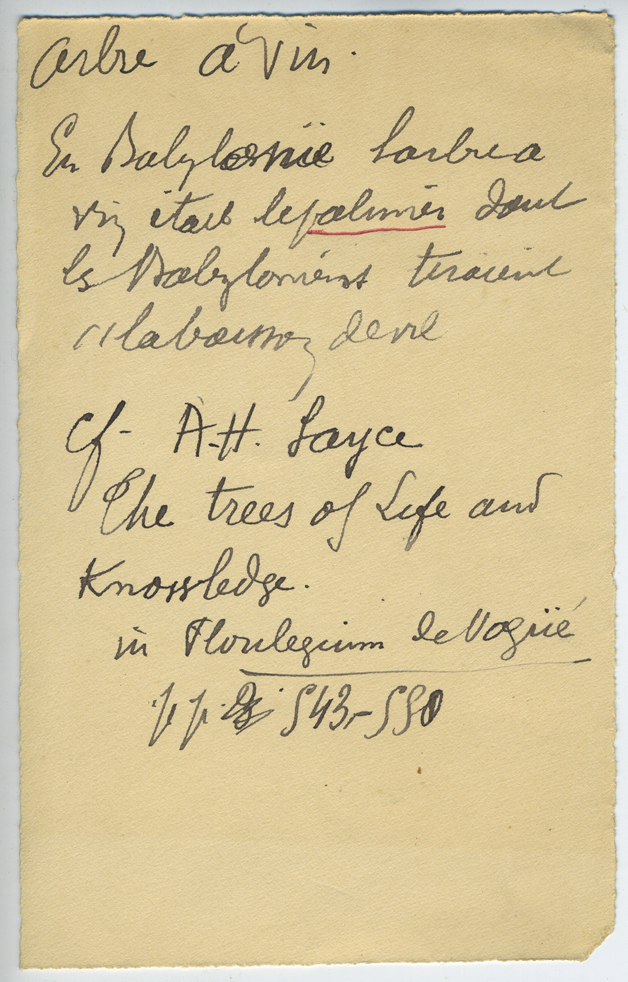 Arbre à vin.
En Babylonië l'arbre a
vin était le palmier dont
les Babyloniens tiraient
la boisson de vie
cf- A.H. Sayce
The trees of Life and
Knowledge.
in Florilegium de Vogüé
pp. 543-550